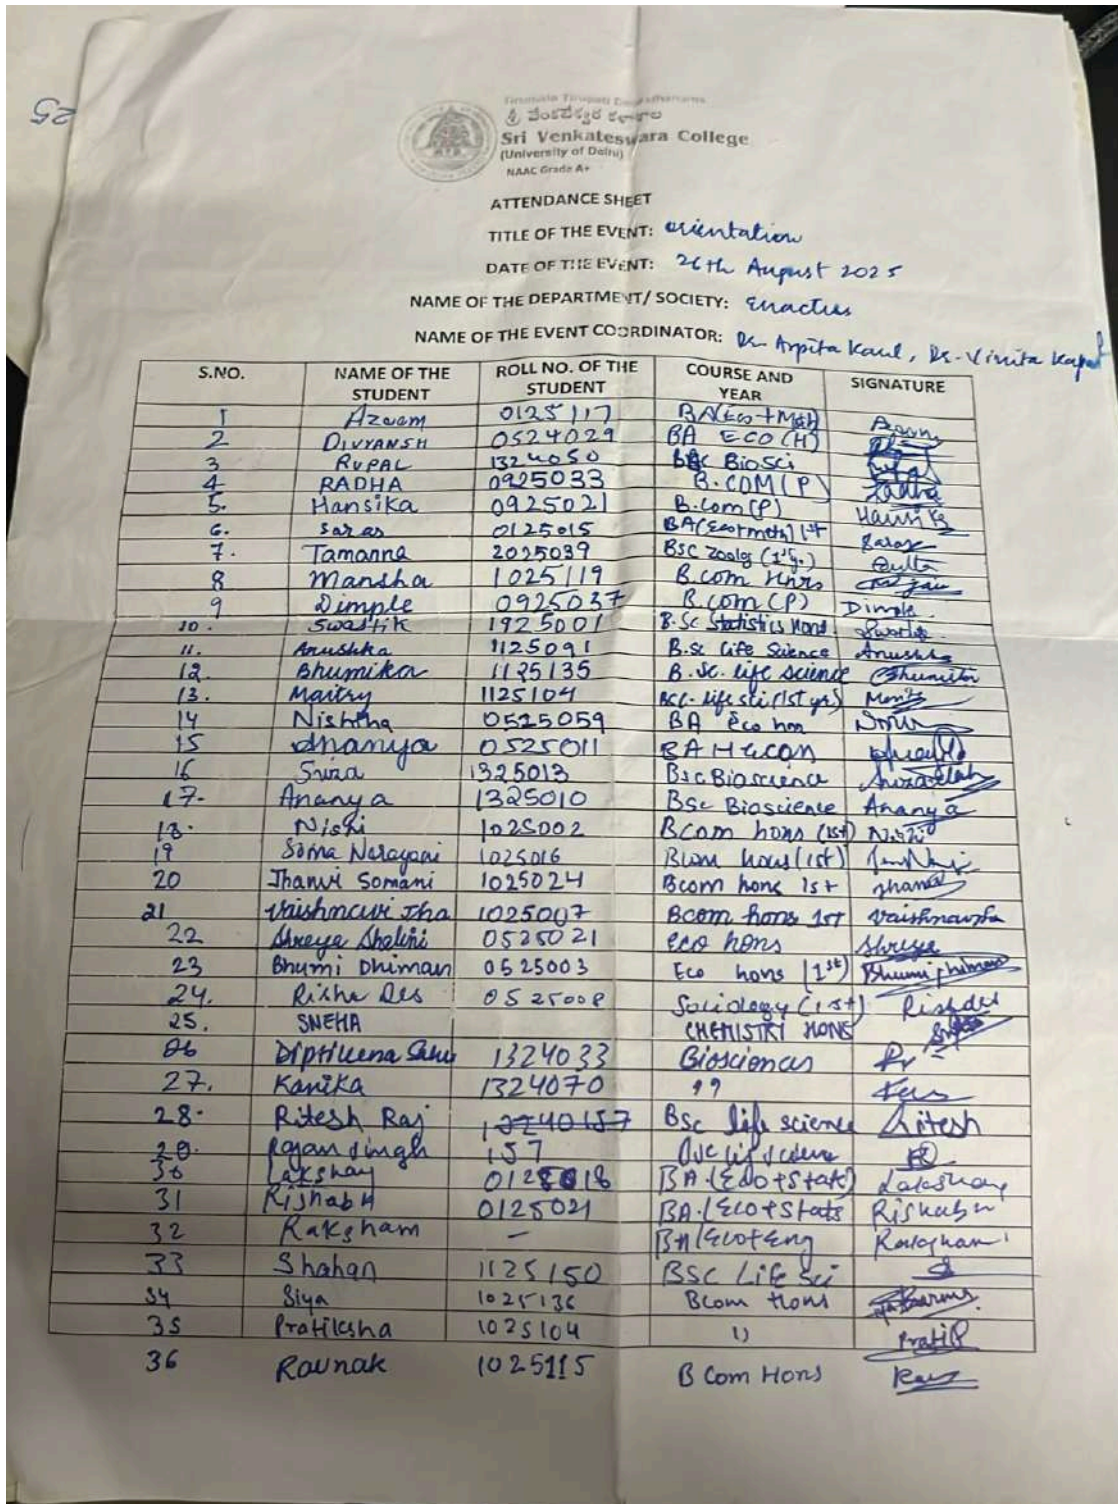 25
Tirumala Tirupati Devasthanams
Sri Venkateswara College
(University of Delhi)
NAAC Grade A+
ATTENDANCE SHEET
TITLE OF THE EVENT: orientation
DATE OF THE EVENT: 26th August 2025
NAME OF THE DEPARTMENT/ SOCIETY: Enactus
NAME OF THE EVENT COORDINATOR: Dr. Arpita Kaul, Dr. Vinita Kapoor
S.NO. NAME OF THE STUDENT ROLL NO. OF THE STUDENT COURSE AND YEAR SIGNATURE
1 Azeem 0125117 BA(Eco+Mat)
2 DIVYANSH 0524029 BA ECO(H)
3 RUPAL 1324050 BSc BioSci
4 RADHA 0925033 B.COM(P) Radha
5. Hansika 0925021 B.Com(P) Hansika
6. Saras 0125015 BA(Eco+meth) 1st Saras
7. Tamanna 2025039 BSC Zoolg (1st y.)
8 Mansha 1025119 B.com Hnrs
9 Dimple 0925037 B.com(P) Dimple
10. Swastik 1925001 B.Sc Statistics Hons Swastik
11. Anushka 1125091 B.Sc Life Science Anushka
12. Bhumika 1125135 B.Sc. life science Bhumika
13. Maitry 1125104 BSc. life sci (1st yr)
14 Nishtha 0525059 BA Eco hon
15 Ananya 0525011 BA H ECON
16 Sriza 1325013 Bsc Bioscience
17. Ananya 1325010 Bsc Bioscience Ananya
18. Nishi 1025002 Bcom hons (1st) Nishi
19 Soma Narayani 1025016 Bcom hons (1st)
20 Jhanvi Somani 1025024 Bcom hons 1st
21 Vaishnavi Jha 1025007 Bcom hons 1st Vaishnavi Jha
22 Shreya Shalini 0525021 Eco hons Shreya
23 Bhumi Dhiman 0525003 Eco hons (1st) Bhumi Dhiman
24. Risha Des 0525008 Sociology (1st)
25. SNEHA CHEMISTRY HONS
26 Diptileena Sahu 1324033 Biosciences
27. Kanika 1324070 "
28. Ritesh Raj 13240157 BSc life science Ritesh
29. Rajan Singh 157 BSc life science
30 Lakshay 0125018 BA.(Eco+Stats) Lakshay
31 Rishabh 0125021 BA.(Eco+Stats Rishabh
32 Raksham - BA(Eco+Eng Raksham
33 Shahan 1125150 BSC Life Sci
34 Siya 1025136 Bcom Hons
35 Pratiksha 1025104 "
36 Raunak 1025115 B Com Hons